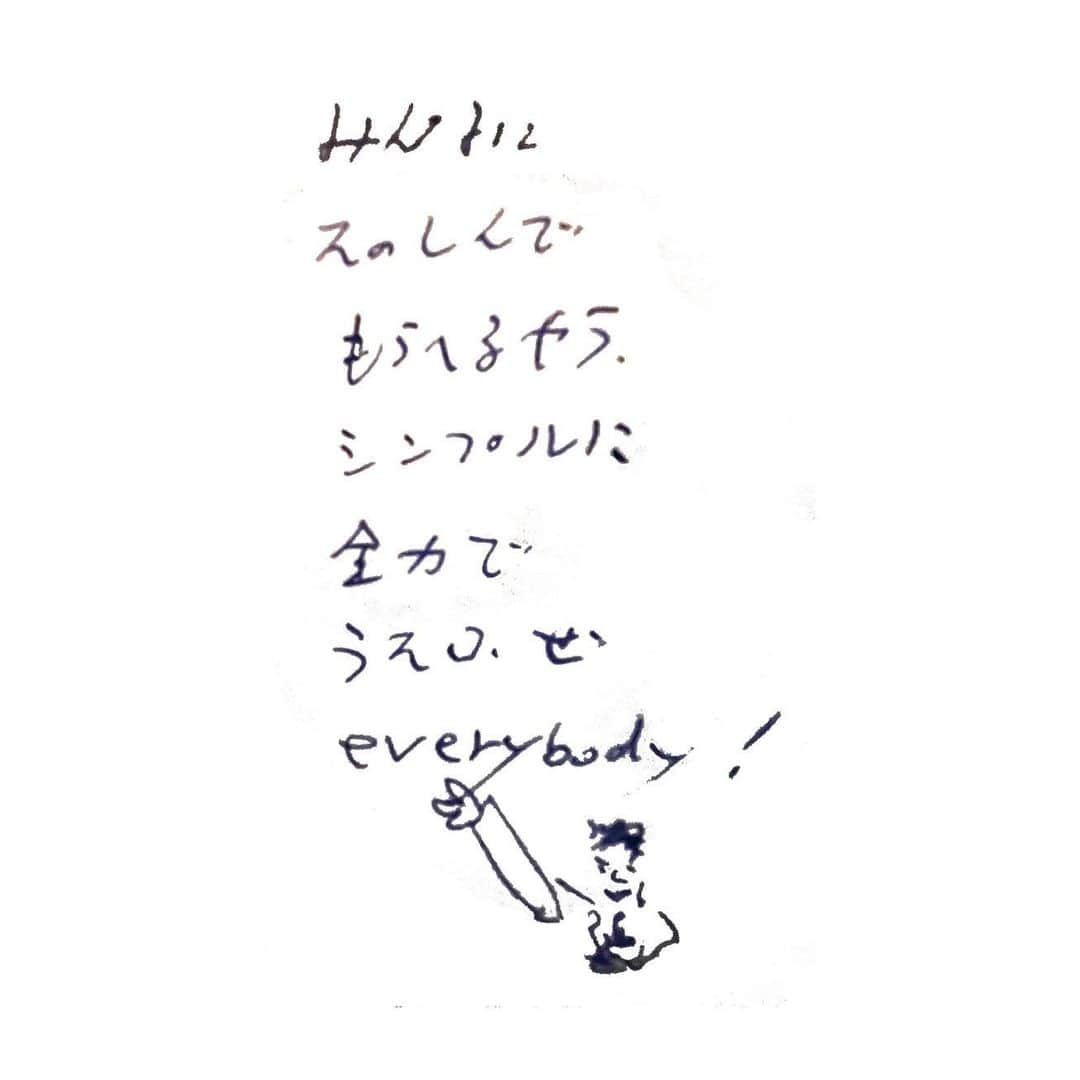 みんなに
たのしんで
もらへるやう、
シンプルに
全力で
うたひ、ぜ
everybody!